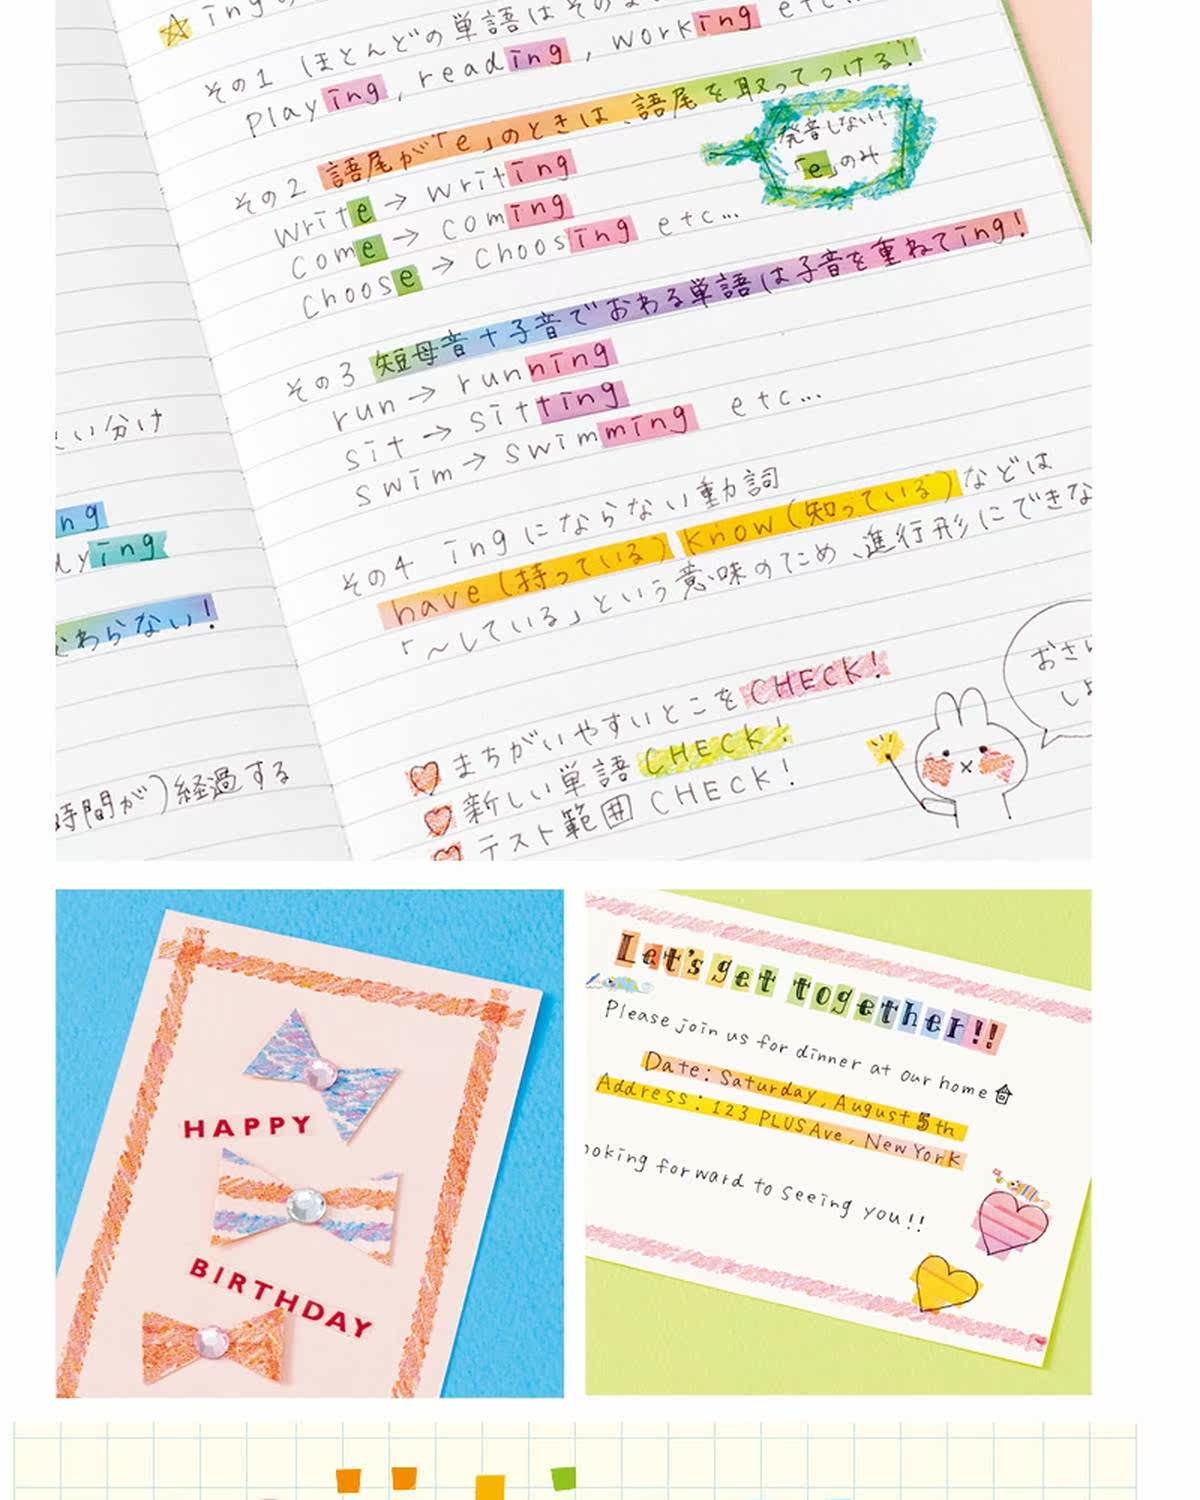 その1 ほとんどの単語は
playing, reading, working etc...
その2 語尾が「e」のときは、語尾を取ってつける!
発音しない!
「e」のみ
write → writing
come → coming
choose → choosing etc...
その3 短母音+子音でおわる単語は子音を重ねてing!
run → running
sit → sitting
swim → swimming etc...
その4 ingにならない動詞
have(持っている) know(知っている)などは
「〜している」という意味のため、進行形にできな
い分け
ng
ying
わらない!
時間が)経過する
まちがいやすいとこをCHECK!
新しい単語CHECK!
テスト範囲CHECK!
おさ
し
HAPPY
BIRTHDAY
Let's get together!!
Please join us for dinner at our home
Date: Saturday, August 5th
Address: 123 PLUS Ave, New York
ooking forward to seeing you!!